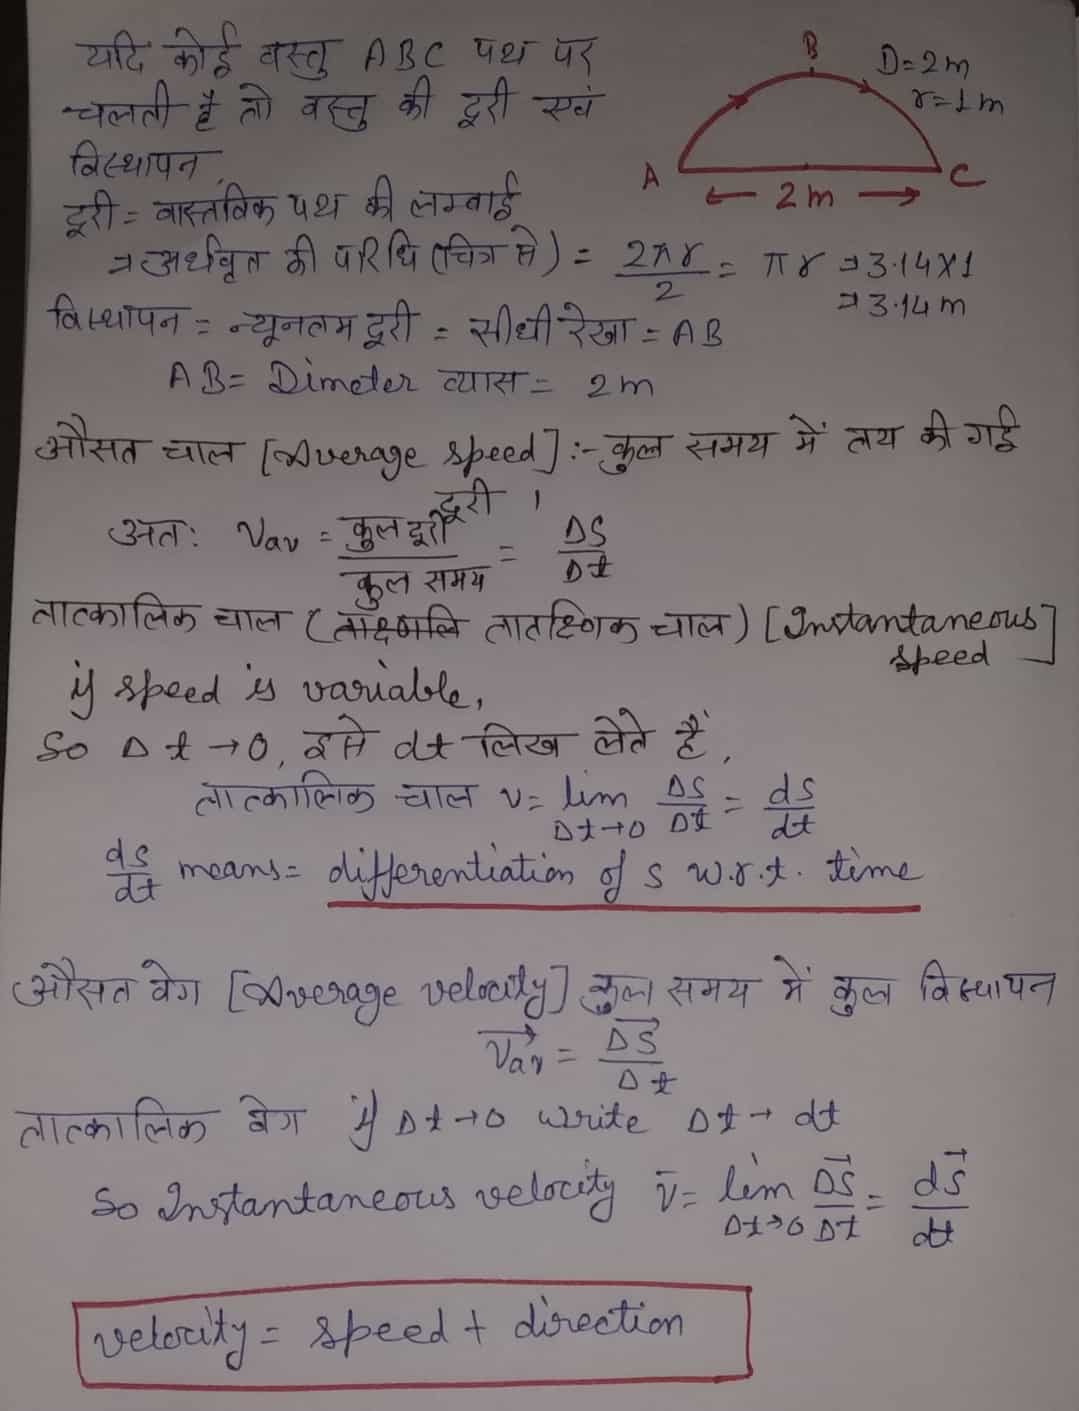 यदि कोई वस्तु ABC पथ पर
चलती है तो वस्तु की दूरी एवं
विस्थापन,
B
D=2m
r=1m
A
C
← 2m →
दूरी = वास्तविक पथ की लम्बाई
⇒ अर्धवृत की परिधि (चित्र से) = 2πr/2 = πr ⇒ 3.14×1
⇒ 3.14 m
विस्थापन = न्यूनतम दूरी = सीधी रेखा = AB
AB = Dimeter व्यास = 2m
औसत चाल [Average speed] :- कुल समय में तय की गई
दूरी ।
अतः Vav = कुल दूरी/कुल समय = ΔS/Δt
तात्कालिक चाल ( तातक्षणिक चाल) [Instantaneous
speed]
if speed is variable,
So Δt→0, इसे dt लिख लेते हैं,
तात्कालिक चाल v = lim Δt→0 ΔS/Δt = ds/dt
ds/dt means = differentiation of s w.r.t. time
औसत वेग [Average velocity] कुल समय में कुल विस्थापन
V⃗av = ΔS⃗/Δt
तात्कालिक वेग if Δt→0 write Δt→dt
So Instantaneous velocity v̄ = lim Δt→0 ΔS⃗/Δt = dS⃗/dt
velocity = speed + direction